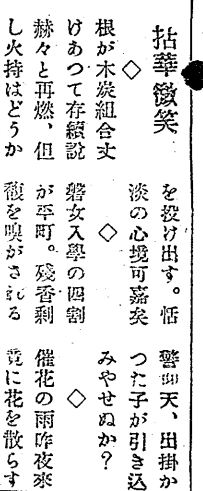 拈華微笑
◇
根が木炭組合丈
けあつて存續說
赫々と再燃、但
し火持はどうか
を投げ出す。恬
淡の心境可嘉矣
◇
磐女入學の四割
が平町。殘香剩
馥を嗅がされる
警仰天、出掛か
つた子が引き込
みやせぬか?
◇
催花の雨昨夜來
に花を散らす